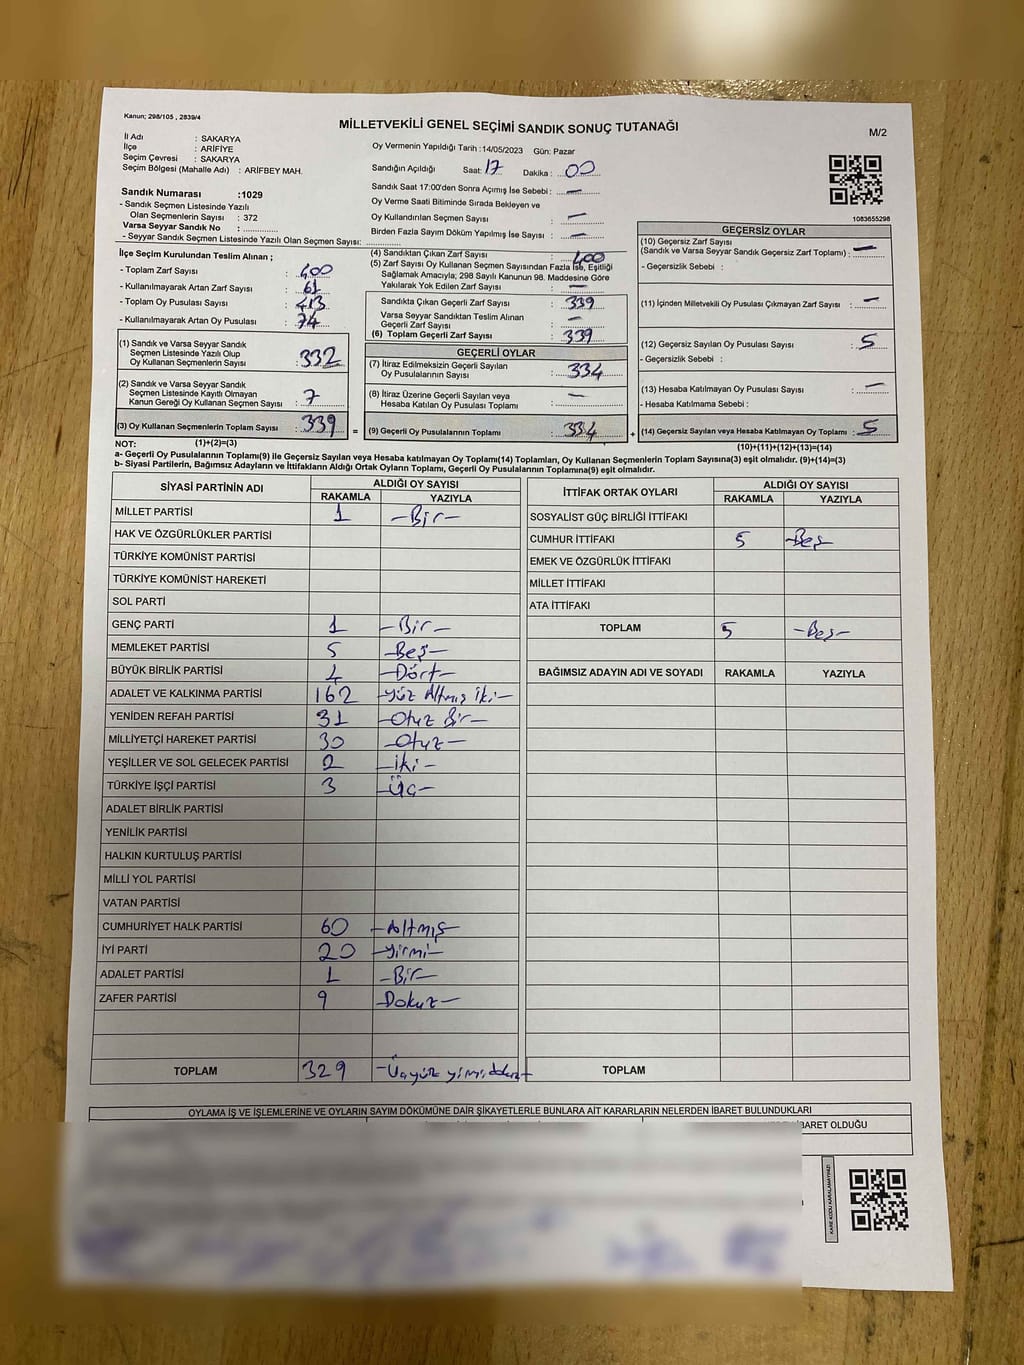 Kanun; 298/105 , 2839/4
MİLLETVEKİLİ GENEL SEÇİMİ SANDIK SONUÇ TUTANAĞI
M/2
İl Adı : SAKARYA
İlçe : ARİFİYE
Seçim Çevresi : SAKARYA
Seçim Bölgesi (Mahalle Adı) : ARİFBEY MAH.
Sandık Numarası :1029
- Sandık Seçmen Listesinde Yazılı
Olan Seçmenlerin Sayısı : 372
Varsa Seyyar Sandık No :
- Seyyar Sandık Seçmen Listesinde Yazılı Olan Seçmen Sayısı:
Oy Vermenin Yapıldığı Tarih :14/05/2023 Gün: Pazar
Sandığın Açıldığı Saat: 17 Dakika : 00
Sandık Saat 17:00'den Sonra Açımış İse Sebebi : —
Oy Verme Saati Bitiminde Sırada Bekleyen ve
Oy Kullandırılan Seçmen Sayısı : —
Birden Fazla Sayım Döküm Yapılmış İse Sayısı : —
1083655298
İlçe Seçim Kurulundan Teslim Alınan ;
- Toplam Zarf Sayısı : 400
- Kullanılmayarak Artan Zarf Sayısı : 61
- Toplam Oy Pusulası Sayısı : 413
- Kullanılmayarak Artan Oy Pusulası : 74
(1) Sandık ve Varsa Seyyar Sandık
Seçmen Listesinde Yazılı Olup
Oy Kullanan Seçmenlerin Sayısı : 332
(2) Sandık ve Varsa Seyyar Sandık
Seçmen Listesinde Kayıtlı Olmayan
Kanun Gereği Oy Kullanan Seçmen Sayısı : 7
(3) Oy Kullanan Seçmenlerin Toplam Sayısı : 339 =
(4) Sandıktan Çıkan Zarf Sayısı : 400
(5) Zarf Sayısı Oy Kullanan Seçmen Sayısından Fazla İse, Eşitliği
Sağlamak Amacıyla; 298 Sayılı Kanunun 98. Maddesine Göre
Yakılarak Yok Edilen Zarf Sayısı : —
Sandıkta Çıkan Geçerli Zarf Sayısı : 339
Varsa Seyyar Sandıktan Teslim Alınan
Geçerli Zarf Sayısı : —
(6) Toplam Geçerli Zarf Sayısı : 339
GEÇERLİ OYLAR
(7) İtiraz Edilmeksizin Geçerli Sayılan
Oy Pusulalarının Sayısı : 334
(8) İtiraz Üzerine Geçerli Sayılan veya
Hesaba Katılan Oy Pusulası Toplamı : —
(9) Geçerli Oy Pusulalarının Toplamı : 334 +
GEÇERSİZ OYLAR
(10) Geçersiz Zarf Sayısı
(Sandık ve Varsa Seyyar Sandık Geçersiz Zarf Toplamı) : —
- Geçersizlik Sebebi :
(11) İçinden Milletvekili Oy Pusulası Çıkmayan Zarf Sayısı : —
(12) Geçersiz Sayılan Oy Pusulası Sayısı : 5
- Geçersizlik Sebebi :
(13) Hesaba Katılmayan Oy Pusulası Sayısı : —
- Hesaba Katılmama Sebebi :
(14) Geçersiz Sayılan veya Hesaba Katılmayan Oy Toplamı : 5
NOT: (1)+(2)=(3) (10)+(11)+(12)+(13)=(14)
a- Geçerli Oy Pusulalarının Toplamı(9) ile Geçersiz Sayılan veya Hesaba katılmayan Oy Toplamı(14) Toplamları, Oy Kullanan Seçmenlerin Toplam Sayısına(3) eşit olmalıdır. (9)+(14)=(3)
b- Siyasi Partilerin, Bağımsız Adayların ve İttifakların Aldığı Ortak Oyların Toplamı, Geçerli Oy Pusulalarının Toplamına(9) eşit olmalıdır.
SİYASİ PARTİNİN ADI ALDIĞI OY SAYISI
RAKAMLA YAZIYLA
MİLLET PARTİSİ 1 -Bir-
HAK VE ÖZGÜRLÜKLER PARTİSİ
TÜRKİYE KOMÜNİST PARTİSİ
TÜRKİYE KOMÜNİST HAREKETİ
SOL PARTİ
GENÇ PARTİ 1 -Bir-
MEMLEKET PARTİSİ 5 -Beş-
BÜYÜK BİRLİK PARTİSİ 4 -Dört-
ADALET VE KALKINMA PARTİSİ 162 -Yüz Altmış iki-
YENİDEN REFAH PARTİSİ 31 -Otuz Bir-
MİLLİYETÇİ HAREKET PARTİSİ 30 -Otuz-
YEŞİLLER VE SOL GELECEK PARTİSİ 2 -iki-
TÜRKİYE İŞÇİ PARTİSİ 3 -Üç-
ADALET BİRLİK PARTİSİ
YENİLİK PARTİSİ
HALKIN KURTULUŞ PARTİSİ
MİLLİ YOL PARTİSİ
VATAN PARTİSİ
CUMHURİYET HALK PARTİSİ 60 -Altmış
İYİ PARTİ 20 -Yirmi-
ADALET PARTİSİ 1 -Bir-
ZAFER PARTİSİ 9 -Dokuz-
TOPLAM 329 -Üçyüz yirmi dokuz-
İTTİFAK ORTAK OYLARI ALDIĞI OY SAYISI
RAKAMLA YAZIYLA
SOSYALİST GÜÇ BİRLİĞİ İTTİFAKI
CUMHUR İTTİFAKI 5 -Beş-
EMEK VE ÖZGÜRLÜK İTTİFAKI
MİLLET İTTİFAKI
ATA İTTİFAKI
TOPLAM 5 -Beş-
BAĞIMSIZ ADAYIN ADI VE SOYADI RAKAMLA YAZIYLA
TOPLAM
OYLAMA İŞ VE İŞLEMLERİNE VE OYLARIN SAYIM DÖKÜMÜNE DAİR ŞİKAYETLERLE BUNLARA AİT KARARLARIN NELERDEN İBARET BULUNDUKLARI
İBARET OLDUĞU
KARE KODU KARALAMAYINIZ!